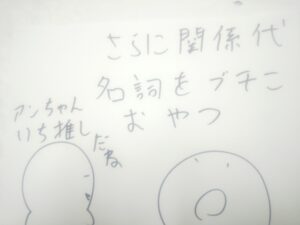 さらに関係代
名詞をブチこ
おやつ
アンちゃん
いち推し
だね